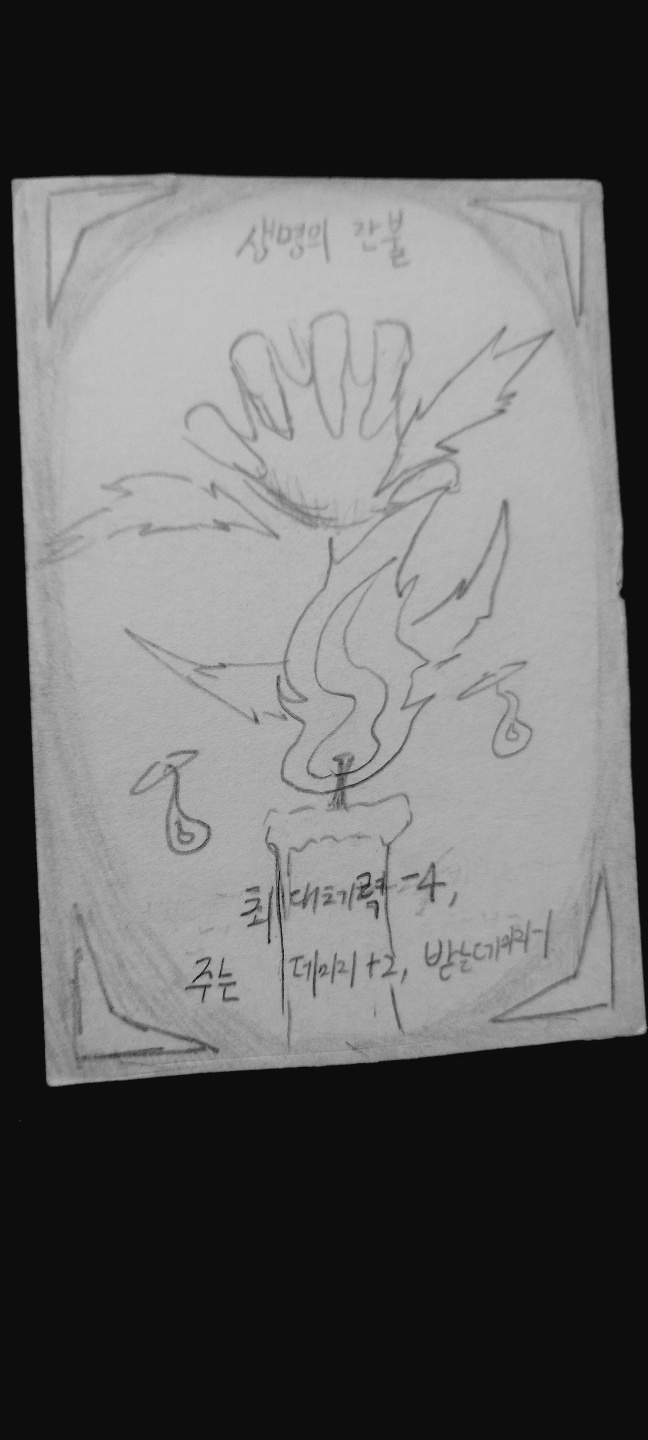 생명의 잔불
최대체력 -4,
주는 데미지 +2, 받는데미지-1